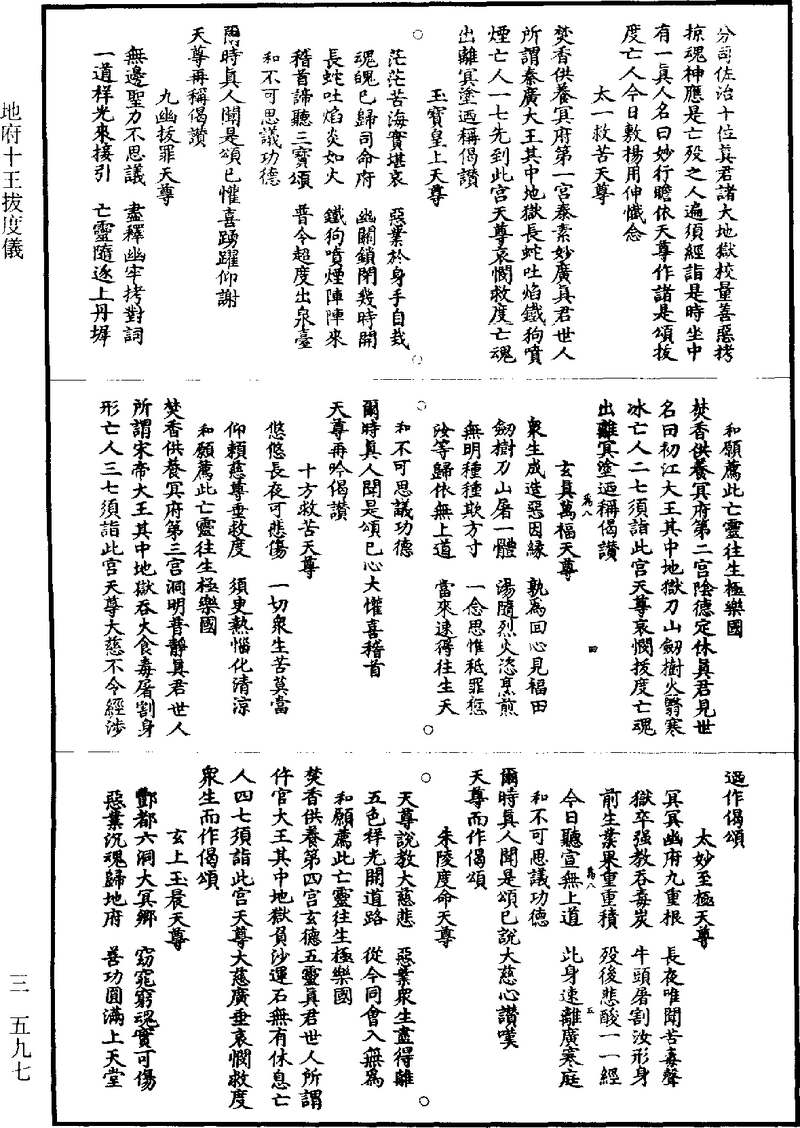 分司佐治十位真君諸大地獄校量善惡拷
掠魂神應是亡歿之人遍須經詣是時坐中
有一真人名曰妙行瞻依天尊作諸是頌拔
度亡人今日敷揚用伸懺念
太一救苦天尊
焚香供養冥府第一宮泰素妙廣真君世人
所謂秦廣大王其中地獄長蛇吐焰鐵狗噴
煙亡人一七先到此宮天尊哀憫救度亡魂
出離冥塗迺稱偈讚
玉寶皇上天尊
○
茫茫苦海實堪哀　惡業於身手自栽
魂魄已歸司命府　幽關鎖閉幾時開
長蛇吐焰炎如火　鐵狗噴煙陣陣來
稽首諦聽三寶頌　普令超度出泉臺○
和不可思議功德
爾時真人聞是頌已懽喜踴躍仰謝
天尊再稱偈讚
九幽拔罪天尊
無邊聖力不思議　盡釋幽牢拷對詞
一道祥光來接引　亡靈隨逐上丹墀
和願薦此亡靈往生極樂國
焚香供養冥府第二宮陰德定休真君見世
名曰初江大王其中地獄刀山劒樹火翳寒
冰亡人二七須詣此宮天尊哀憫拔度亡魂
出離冥塗迺稱偈讚
玄真萬福天尊
爲八　四
眾生咸造惡因緣　孰為回心見福田
劒樹刀山屠一體　湯隨烈火恣烹煎
無明種種欺方寸　一念思惟秪罪愆
汝等歸依無上道　當來速得往生天○
○
和不可思議功德
爾時真人聞是頌已心大懽喜稽首
天尊再吟偈讚
十方救苦天尊
悠悠長夜可悲傷　一切衆生苦莫當
仰賴慈尊垂救度　須臾熱惱化清涼
和願薦此亡靈往生極樂國
焚香供養冥府第三宮洞明普靜真君世人
所謂宋帝大王其中地獄吞火食毒屠割身
形亡人三七須詣此宮天尊大慈不令經涉
迺作偈頌
太妙至極天尊
冥冥幽府九重根　長夜唯聞苦毒聲
獄卒强教吞毒炭　牛頭屠割汝形身
前生業果重重積　歿後悲酸一一經
爲八　五
今日聽宣無上道　此身速離廣寒庭
和不可思議功德
爾時真人聞是頌已說大慈心讚嘆
天尊而作偈頌
朱陵度命天尊
○
天尊說教大慈悲　惡業衆生盡得離
五色祥光開道路　從今同會入無為○
和願薦此亡靈往生極樂國
焚香供養第四宮玄德五靈真君世人所謂
仵官大王其中地獄負沙運石無有休息亡
人四七須詣此宮天尊大慈廣垂哀憫救度
衆生而作偈頌
玄上玉晨天尊
酆都六洞大冥鄉　窈窕窮魂實可傷
惡業沉魂歸地府　善功圓滿上天堂
地府十王拔度儀
三　五九七